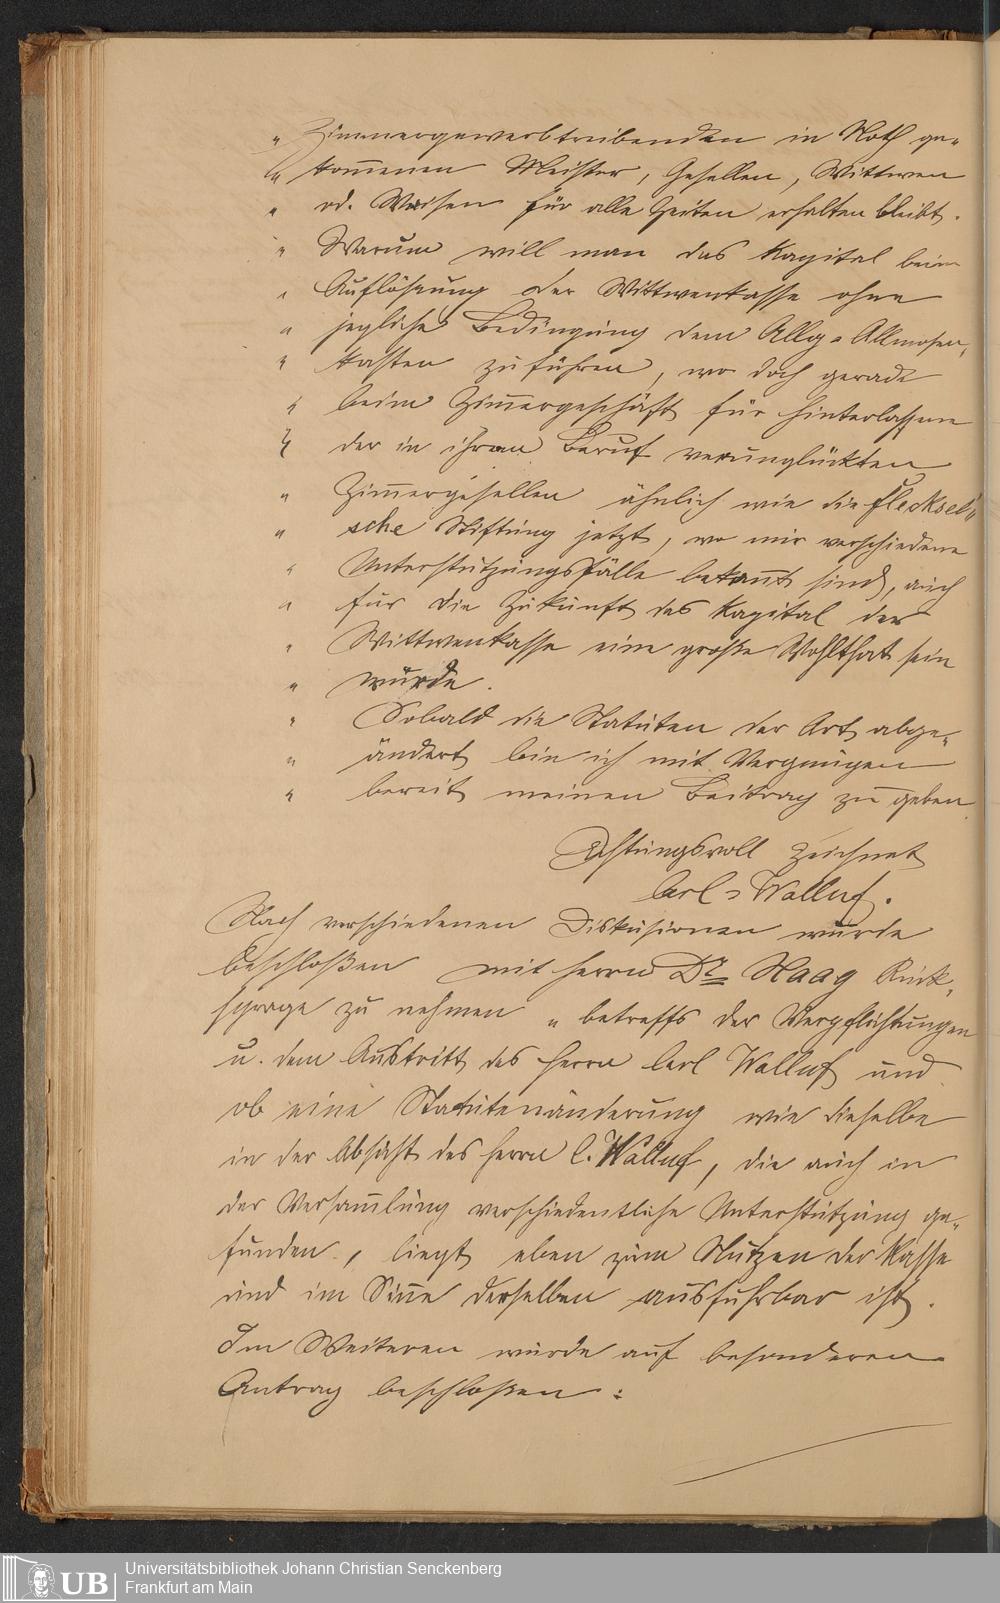 " Zimmergewerbtreibenden in Noth ge-
" kom̄enen Meister, Gesellen, Wittwen
" od. Waisen für alle Zeiten erhalten bleibt.
" Warum will man das Kapital beim
" Auflösung der Wittwenkasse ohne
" jegliche Bedingung dem Allg. Allmosen-
" kasten zuführen, wo doch gerade
" beim Zim̄ergeschäft für Hinterlassene
" der in ihrem Beruf verunglückten
" Zim̄ergesellen ähnlich wie die Flecksel'
" sche Stiftung jetzt, wo mir verschiedene
" Unterstützungsfälle bekan̄t sind, auch
" für die Zukunft das Kapital der
" Wittwenkasse eine große Wohlthat sein
" würde.
" Sobald die Statuten der Art abge-
" ändert bin ich mit Vergnügen
" bereit meinen Beitrag zu geben.
Achtungsvoll zeichnet
Carl Walluf.
Nach verschiedenen Diskusionen wurde
beschloßen mit Herrn Dr Haag Rück-
sprage zu nehmen " betreffs der Verpflichtungen
u. dem Austritt des Herrn Carl Walluf und
ob eine Statutenänderung wie dieselbe
in der Absicht des Herrn C. Walluf, die auch in
der Versam̄lung verschiedentliche Unterstützung ge-
funden, liegt eben zum Nutzen der Kasse
und im Sin̄e derselben ausführbar ist.
Im Weiteren wurde auf besonderen
Antrag beschloßen:
UB
Universitätsbibliothek Johann Christian Senckenberg
Frankfurt am Main